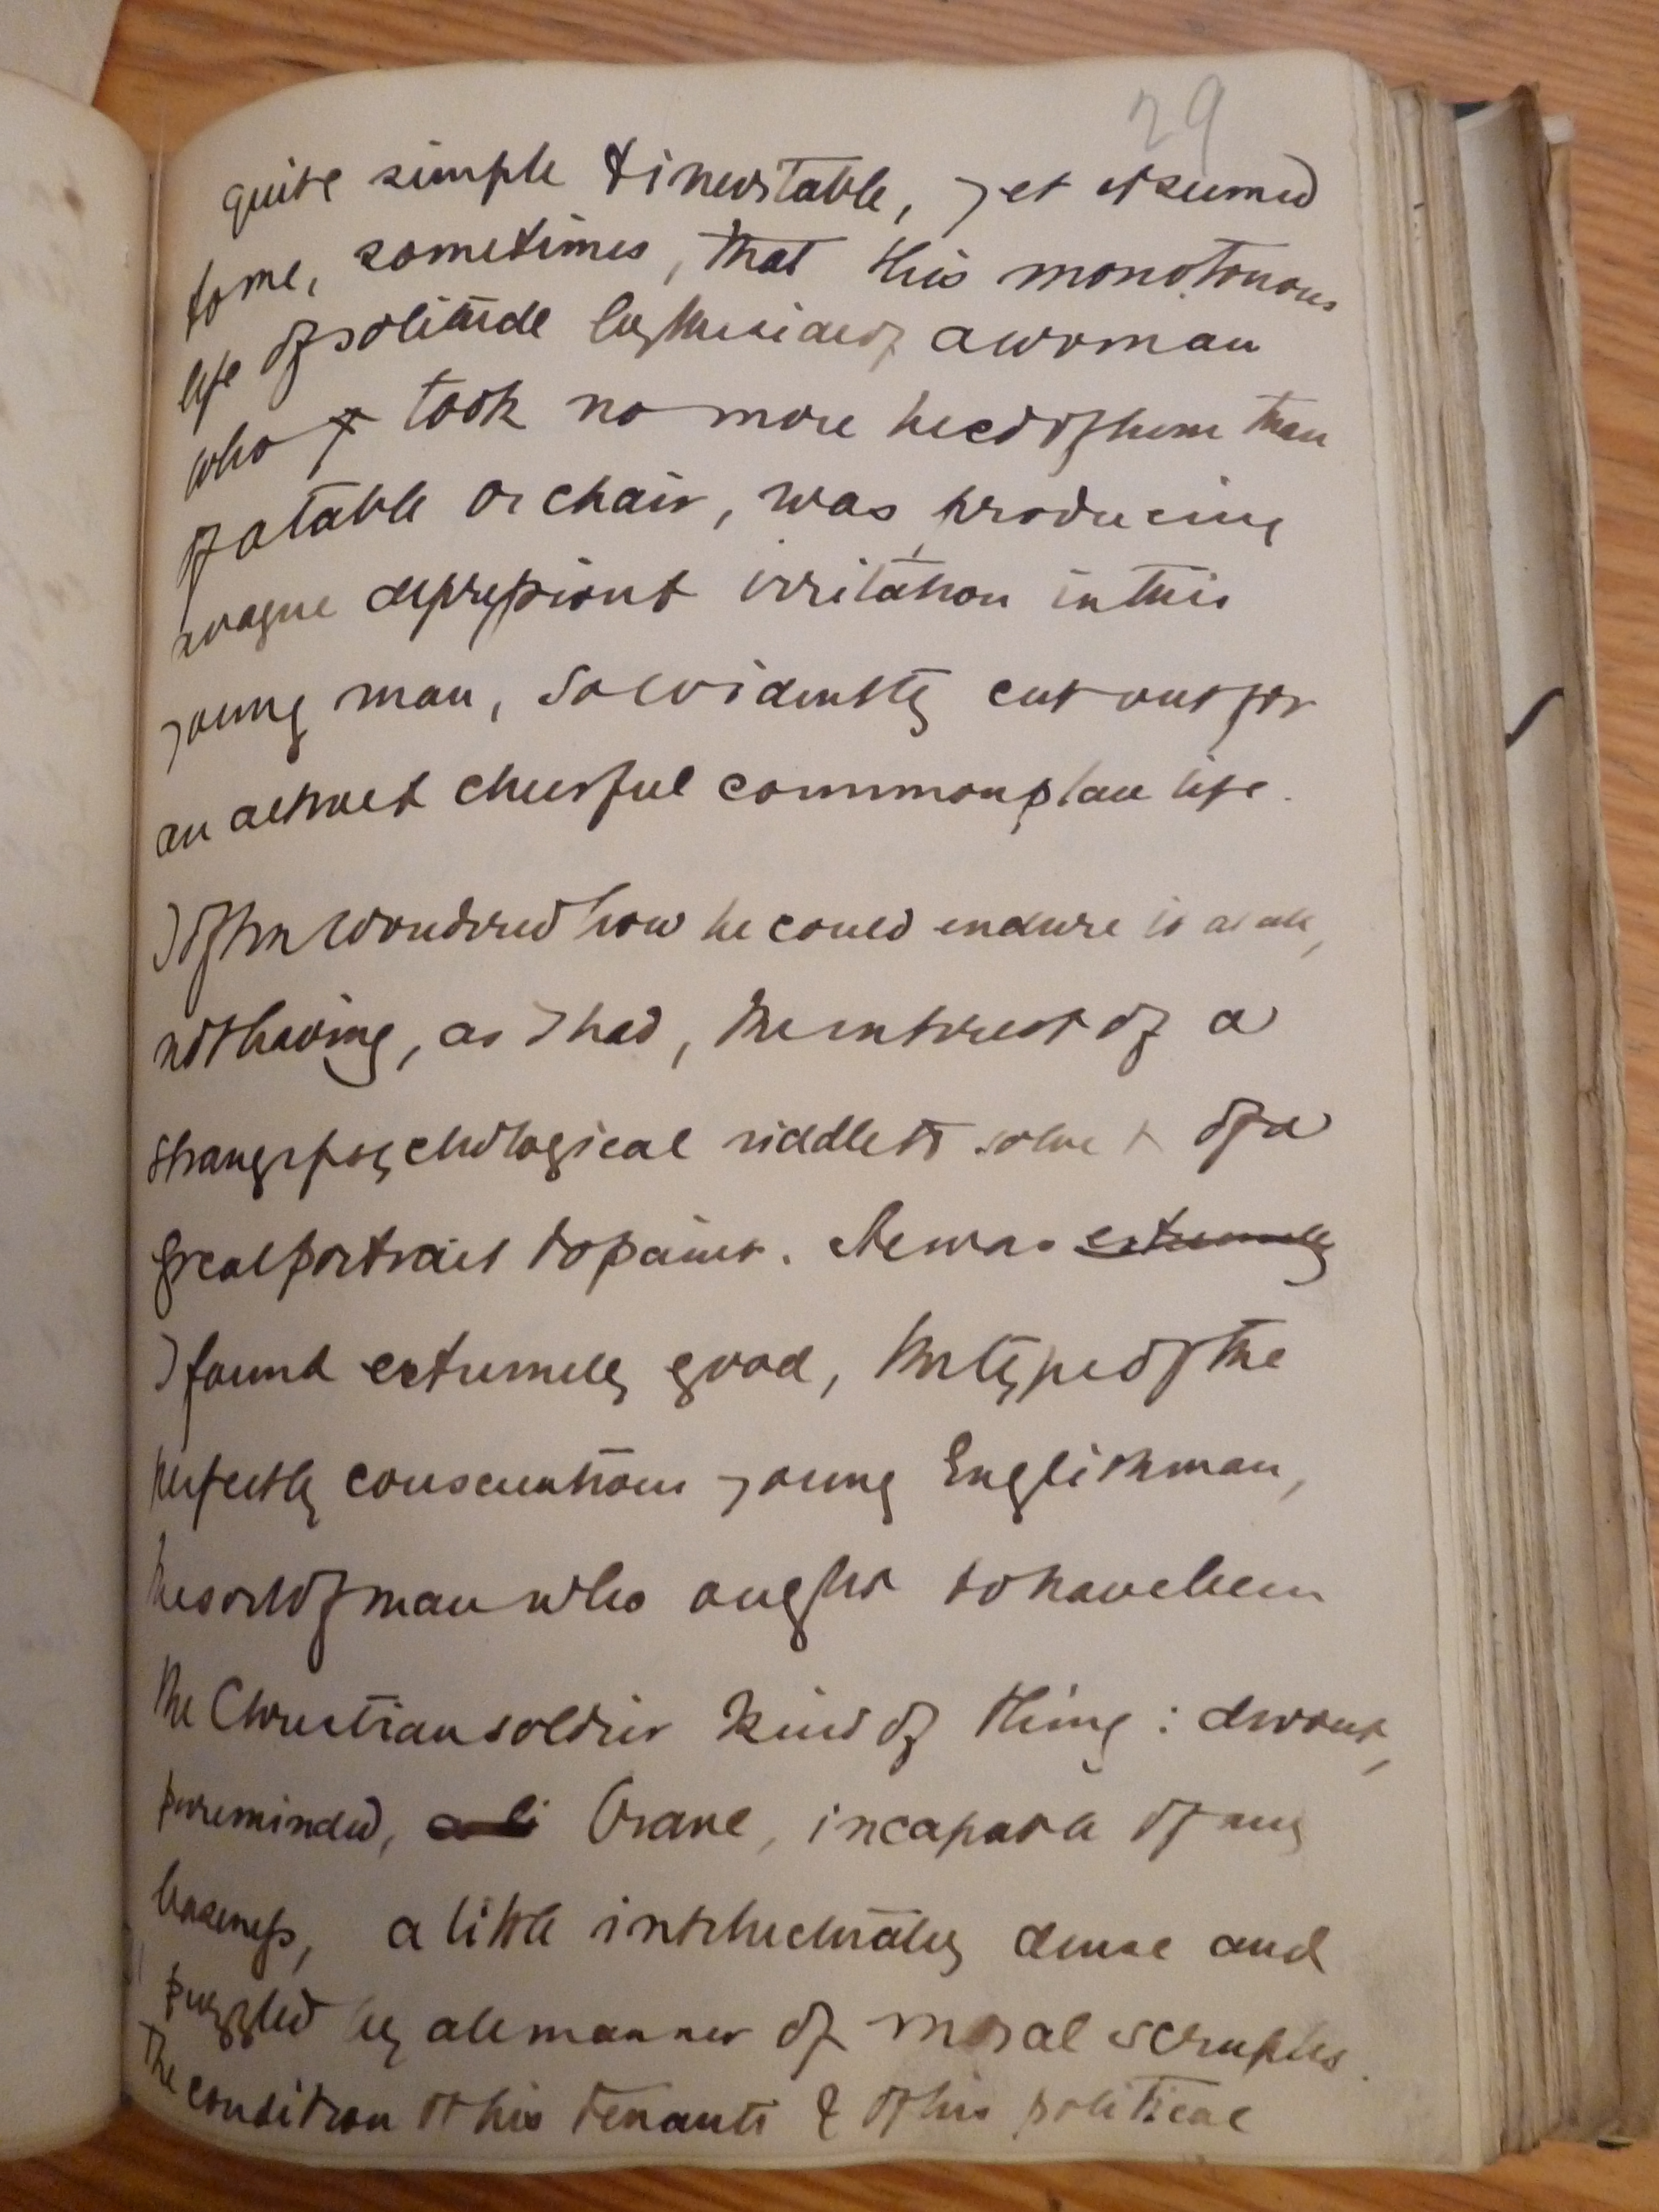 29
quite simple & inevitable, yet it seemed
to me, sometimes, that this monotonous
life of solitude by the side of a woman
who took no more heed of him than
of a table or chair, was producing
a vague depression & irritation in this
young man, so evidently cut out for
an active & cheerful commonplace life.
I often wondered how he could endure it at all,
not having, as I had, the interest of a
strange psychological riddle to solve & of a
great portrait to paint. He was extremely
I found extremely good, the type of the
perfectly conscientious young Englishman,
the sort of man who ought to have been
the Christian soldier kind of thing: devout,
pureminded, brave, incapable of any
baseness, a little intellectually dense and
puzzled by all manner of moral scruples.
The condition of his tenants & of his political